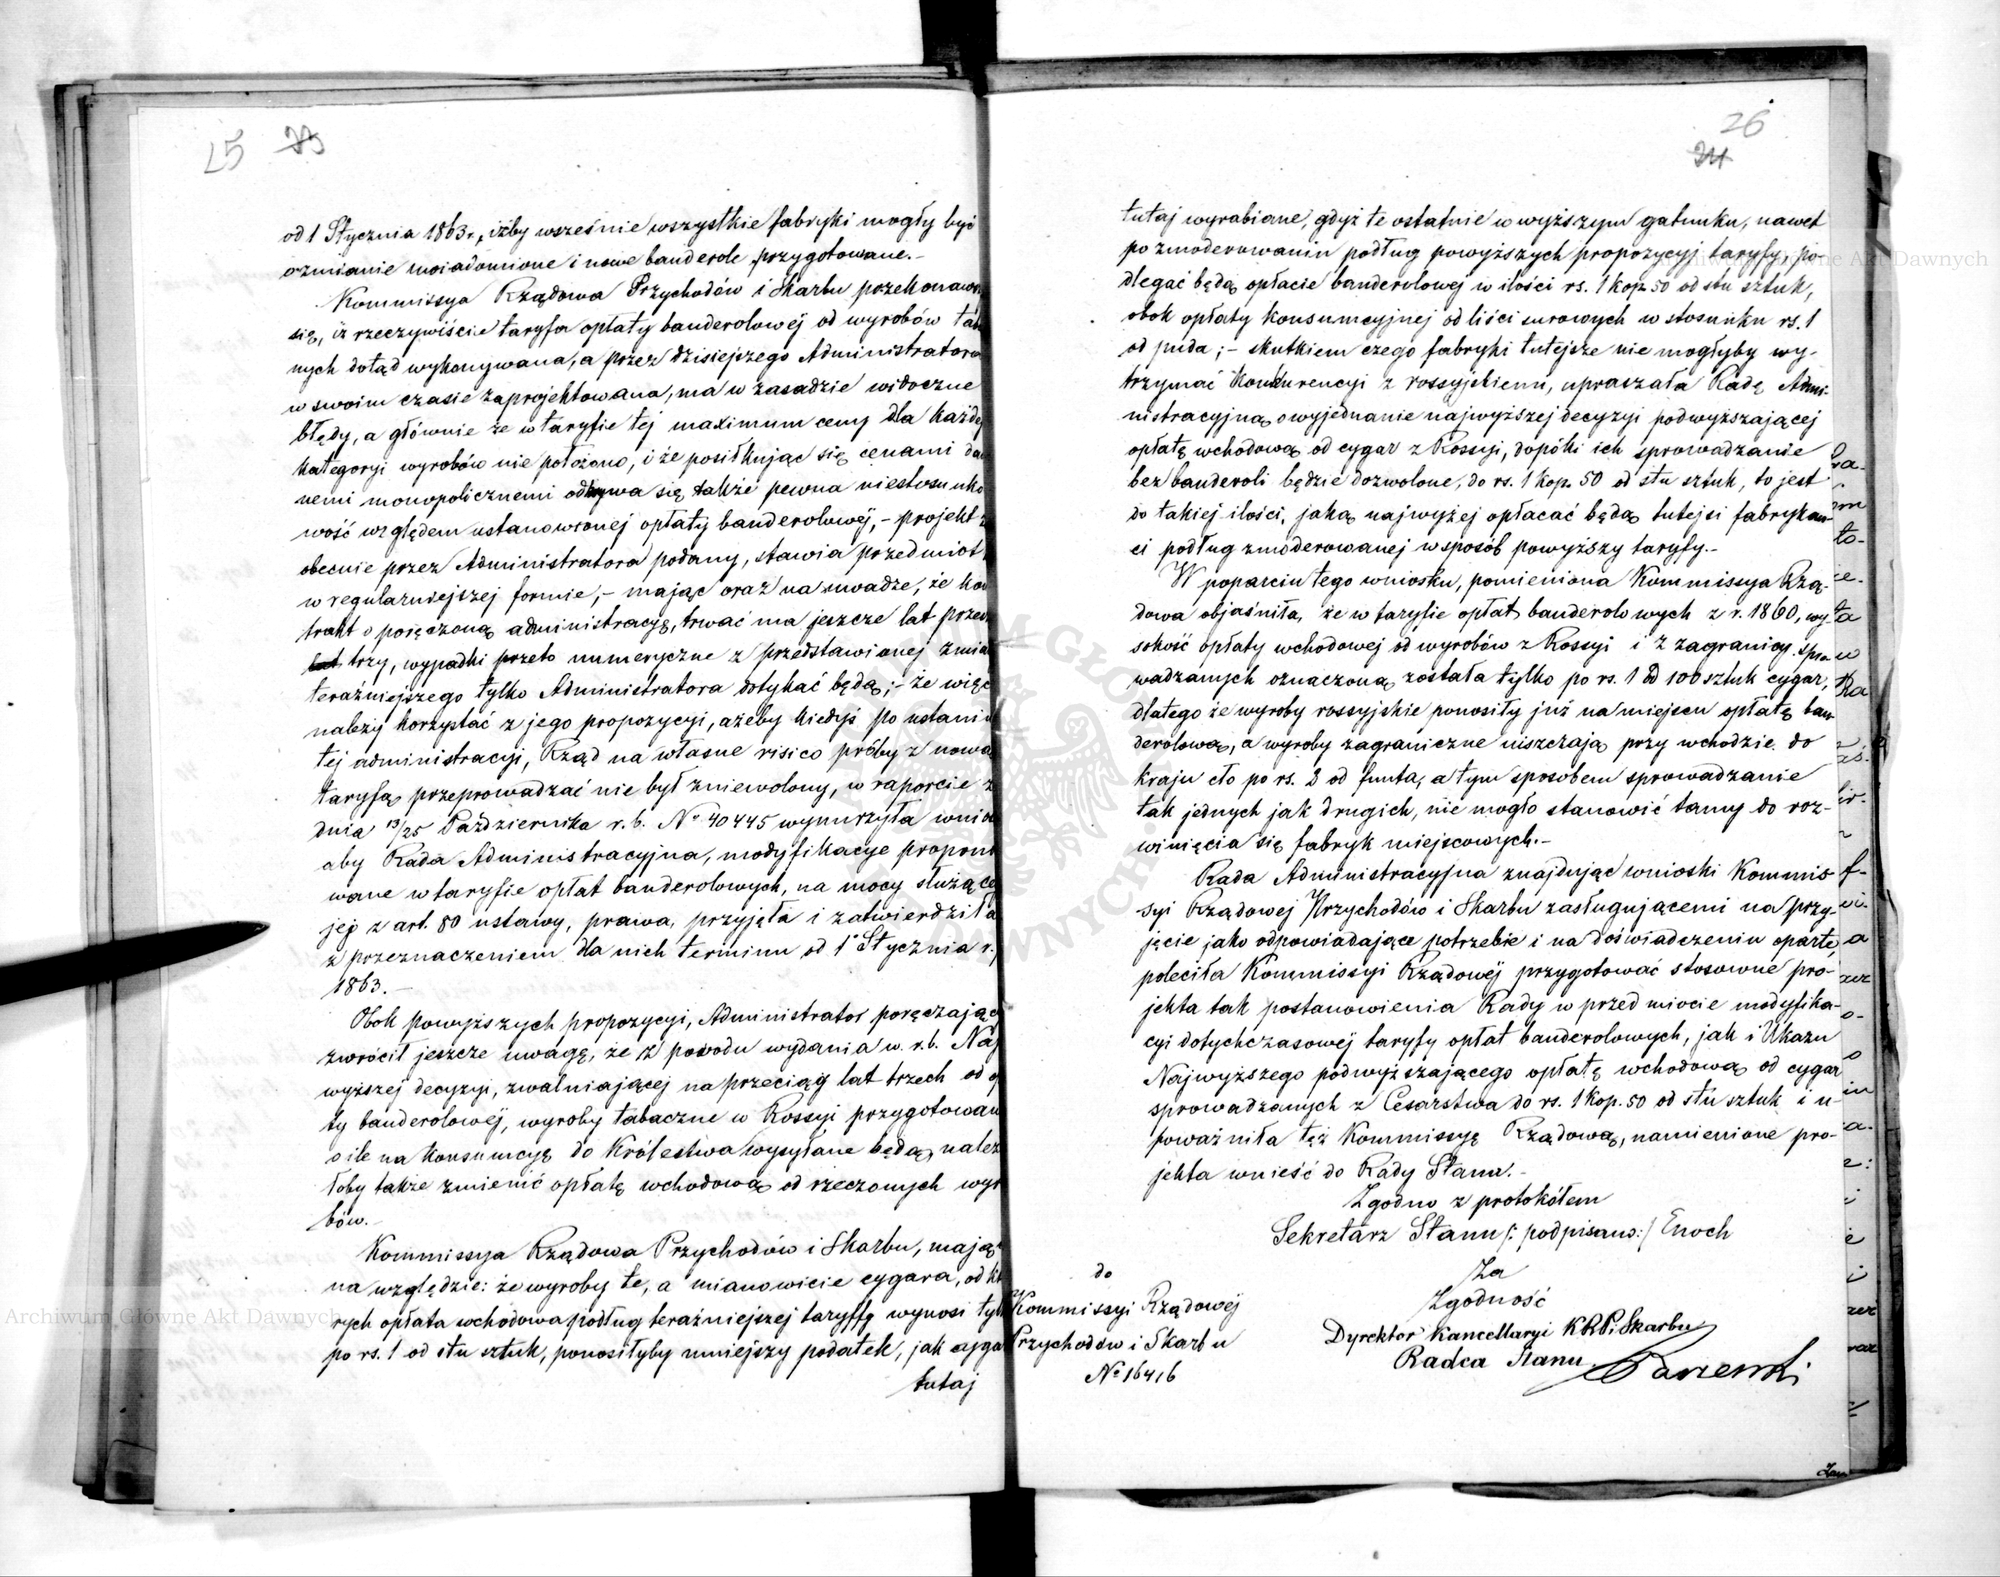 25 23
od 1 Stycznia 1863 r., iżby wcześnie wszystkie fabryki mogły być
o zmianie uwiadomione i nowe banderole przygotowane.-
Kommissya Rządowa Przychodów i Skarbu przekonawszy
się, iż rzeczywiście taryfa opłaty banderolowej od wyrobów tab
nych dotąd wykonywana, a przez dzisiejszego Administratora
w swoim czasie zaprojektowana, ma w zasadzie widoczne
błędy, a głównie że w taryfie tej maximum ceny dla każdej
kategoryi wyrobów nie położono, i że posiłkując się cenami da
nemi monopolicznemi odkrywa się także pewna niestosunko
wość względem ustanowionej opłaty banderolowej,- projekt z
obecnie przez Administratora podany, stawia przedmiot
w regularniejszej formie,- mając oraz na uwadze, że kon
trakt o poręczoną administracyę, trwać ma jeszcze lat przeszło
lat trzy, wypadki przeto numeryczne z przedstawionej zmia
teraźniejszego tylko Administratora dotykać będą;- że więc
należy korzystać z jego propozycyi, ażeby kiedyś po ustaniu
tej administracyi, Rząd na własne risico próby z nową
taryfą przeprowadzać nie był zniewolony, w raporcie z
dnia 13/25 Października r. b. No 40445 wynurzyła wnio
aby Rada Administracyjna, modyfikacye propono
wane w taryfie opłat banderolowych, na mocy służące
jej z art. 80 ustawy, prawa, przyjęła i zatwierdziła
z przeznaczeniem dla nich terminu od 1° Stycznia r.
1863.-
Obok powyższych propozycyi, Administrator poręczający
zwrócił jeszcze uwagę, że z powodu wydania w. r. b. Naj
wyższej decyzyi, zwalniającej na przeciąg lat trzech od o
ty banderolowej, wyroby tabaczne w Rossyi przygotowan
o ile na konsumcyę do Królestwa wysyłane będą, należ
łoby także zmienić opłatę wchodową od rzeczonych wyr
bów.-
Kommissya Rządowa Przychodów i Skarbu, mając
na względzie: że wyroby te, a mianowicie cygara, od któ
rych opłata wchodowa podług teraźniejszej taryffy wynosi tyl
po rs. 1 od stu sztuk, ponosiłyby mniejszy podatek, jak cygar
tutaj
26
24
tutaj wyrabiane, gdyż te ostatnie w wyższym gatunku, nawet
po zmoderowaniu podług powyższych propozycyj taryfy, po-
dlegać będą opłacie banderolowej w ilości rs. 1 kop. 50 od stu sztuk,
obok opłaty konsumcyjnej od liści surowych w stosunku rs. 1
od puda;- skutkiem czego fabryki tutejsze nie mogłyby wy-
trzymać konkurencyi z rossyjskiemi, upraszała Radę Admi-
nistracyjną o wyjednanie najwyższej decyzyi podwyższającej
opłatę wchodową od cygar z Rossyi, dopóki ich sprowadzanie
bez banderoli będzie dozwolone, do rs. 1 kop. 50 od stu sztuk, to jest
do takiej ilości, jaką najwyżej opłacać będą tutejsi fabrykan-
ci podług zmoderowanej w sposób powyższy taryfy.-
W poparciu tego wniosku, pomieniona Kommissya Rzą-
dowa objaśniła, że w taryfie opłat banderolowych z r. 1860, wy-
sokość opłaty wchodowej od wyrobów z Rossyi i z zagranicy spro-
wadzanych oznaczoną została tylko po rs. 1 od 100 sztuk cygar,
dlatego że wyroby rossyjskie ponosiły już na miejscu opłatę ban-
derolową, a wyroby zagraniczne uiszczają przy wchodzie do
kraju cło po rs. 2 od funta, a tym sposobem sprowadzanie
tak jednych jak drugich, nie mogło stanowić tamy do roz-
winięcia się fabryk miejscowych.-
Rada Administracyjna znajdując wnioski Kommis-
syi Rządowej Przychodów i Skarbu zasługującemi na przy-
jęcie jako odpowiadające potrzebie i na doświadczeniu oparte,
poleciła Kommissyi Rządowej przygotować stosowne pro-
jekta tak postanowienia Rady w przedmiocie modyfika-
cyi dotychczasowej taryfy opłat banderolowych, jak i Ukazu
Najwyższego podwyższającego opłatę wchodową od cygar
sprowadzanych z Cesarstwa do rs. 1 kop. 50 od stu sztuk i u-
poważniła też Kommissyę Rządową, namienione pro-
jekta wnieść do Rady Stanu.-
Zgodno z protokółem
Sekretarz Stanu /: podpisano:/ Enoch
Za
Zgodność
Dyrektor Kancellaryi KRPiSkarbu
Radca Stanu
do
Kommissyi Rządowej
Przychodów i Skarbu
No 16416
Archiwum Główne Akt Dawnych
Archiwum Główne Akt Dawnych